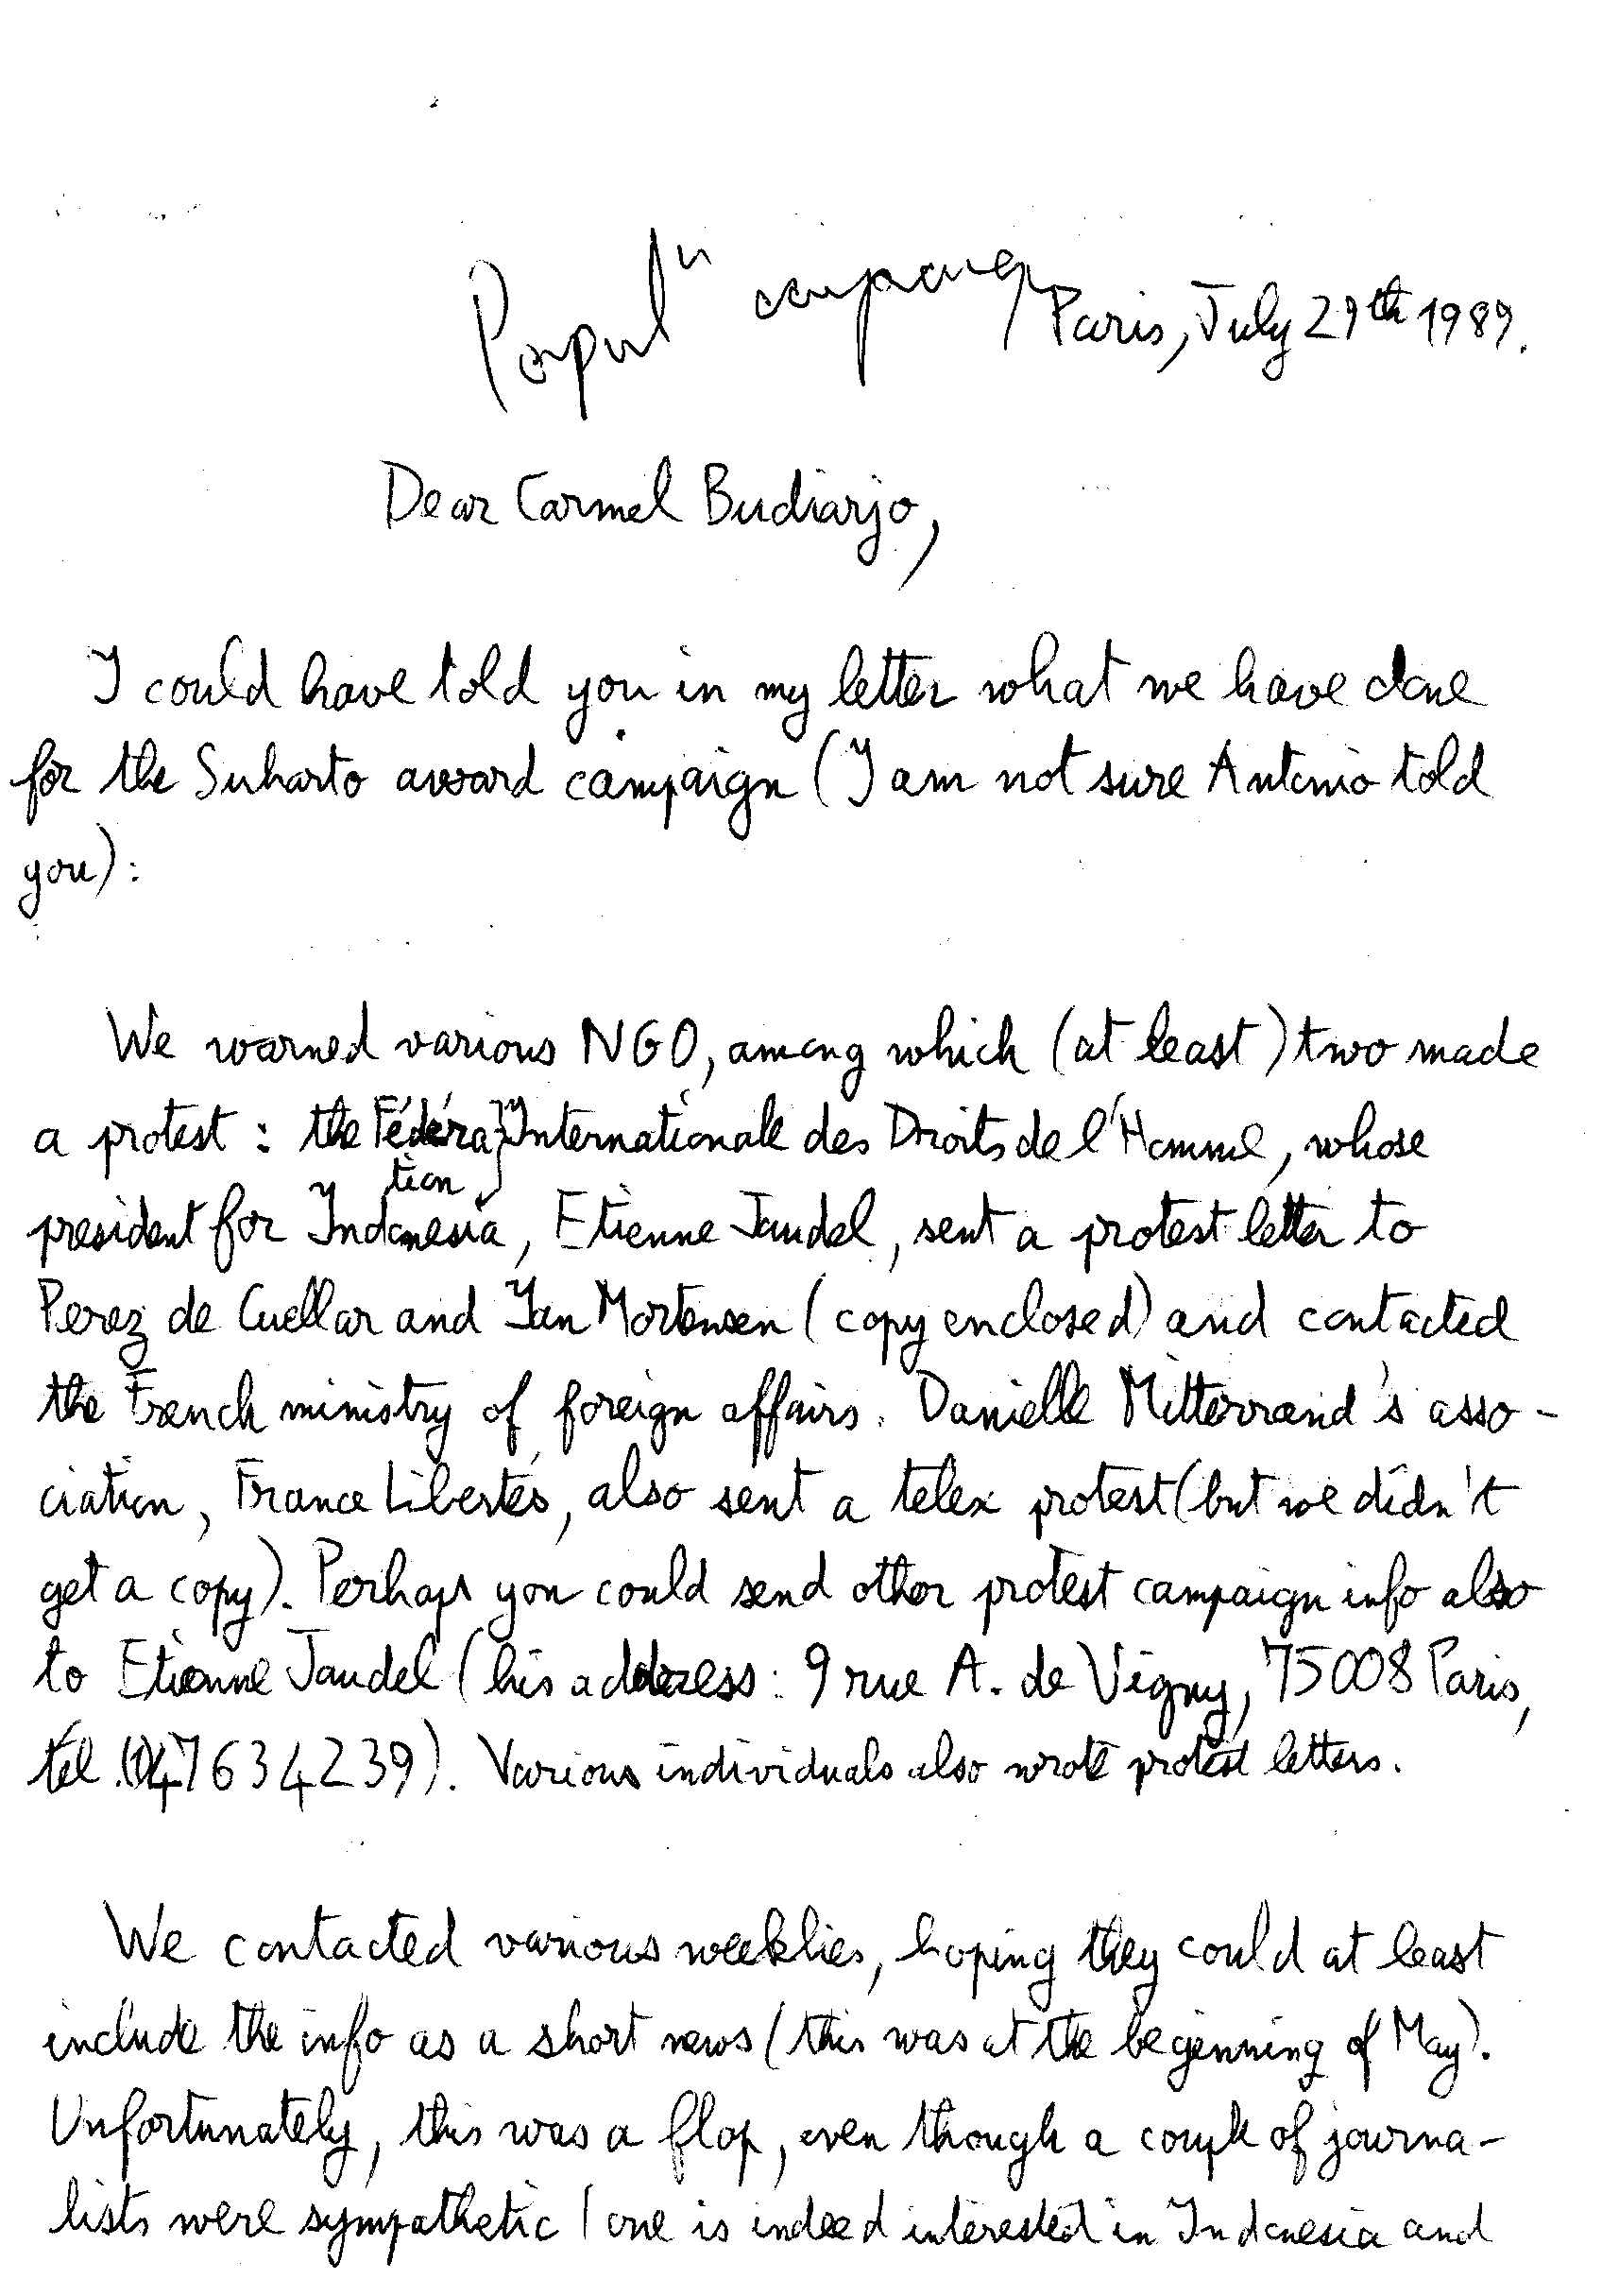 Popul^n campaign
Paris, July 29th 1989.
Dear Carmel Budiarjo,
I could have told you in my letter what we have done
for the Suharto award campaign (I am not sure Antonio told
you):
We warned various NGO, among which (at least) two made
a protest : the Fédéra} Internationale des Droits de l'Homme, whose
tion
president for Indonesia, Etienne Jaudel, sent a protest letter to
Perez de Cuellar and Jan Mortensen (copy enclosed) and contacted
the French ministry of foreign affairs. Danielle Mitterrand's asso-
ciation, France Libertés, also sent a telex protest (but we didn't
get a copy). Perhaps you could send other protest campaign info also
to Etienne Jaudel (his address : 9 rue A. de Vigny, 75008 Paris,
tél.(1)47634239). Various individuals also wrote protest letters.
We contacted various weeklies, hoping they could at least
include the info as a short news (this was at the beginning of May).
Unfortunately, this was a flop, even though a couple of journa-
lists were sympathetic (one is indeed interested in Indonesia and